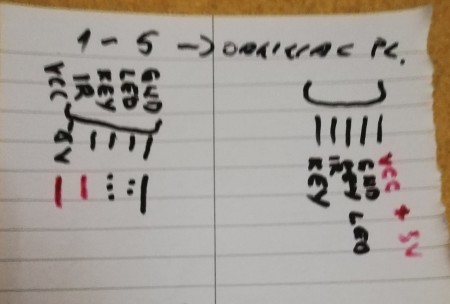 1 - 5 → PC.
VCC
IR
KEY
LED
GND
5V
KEY
IR
GND
LED
VCC + 5V